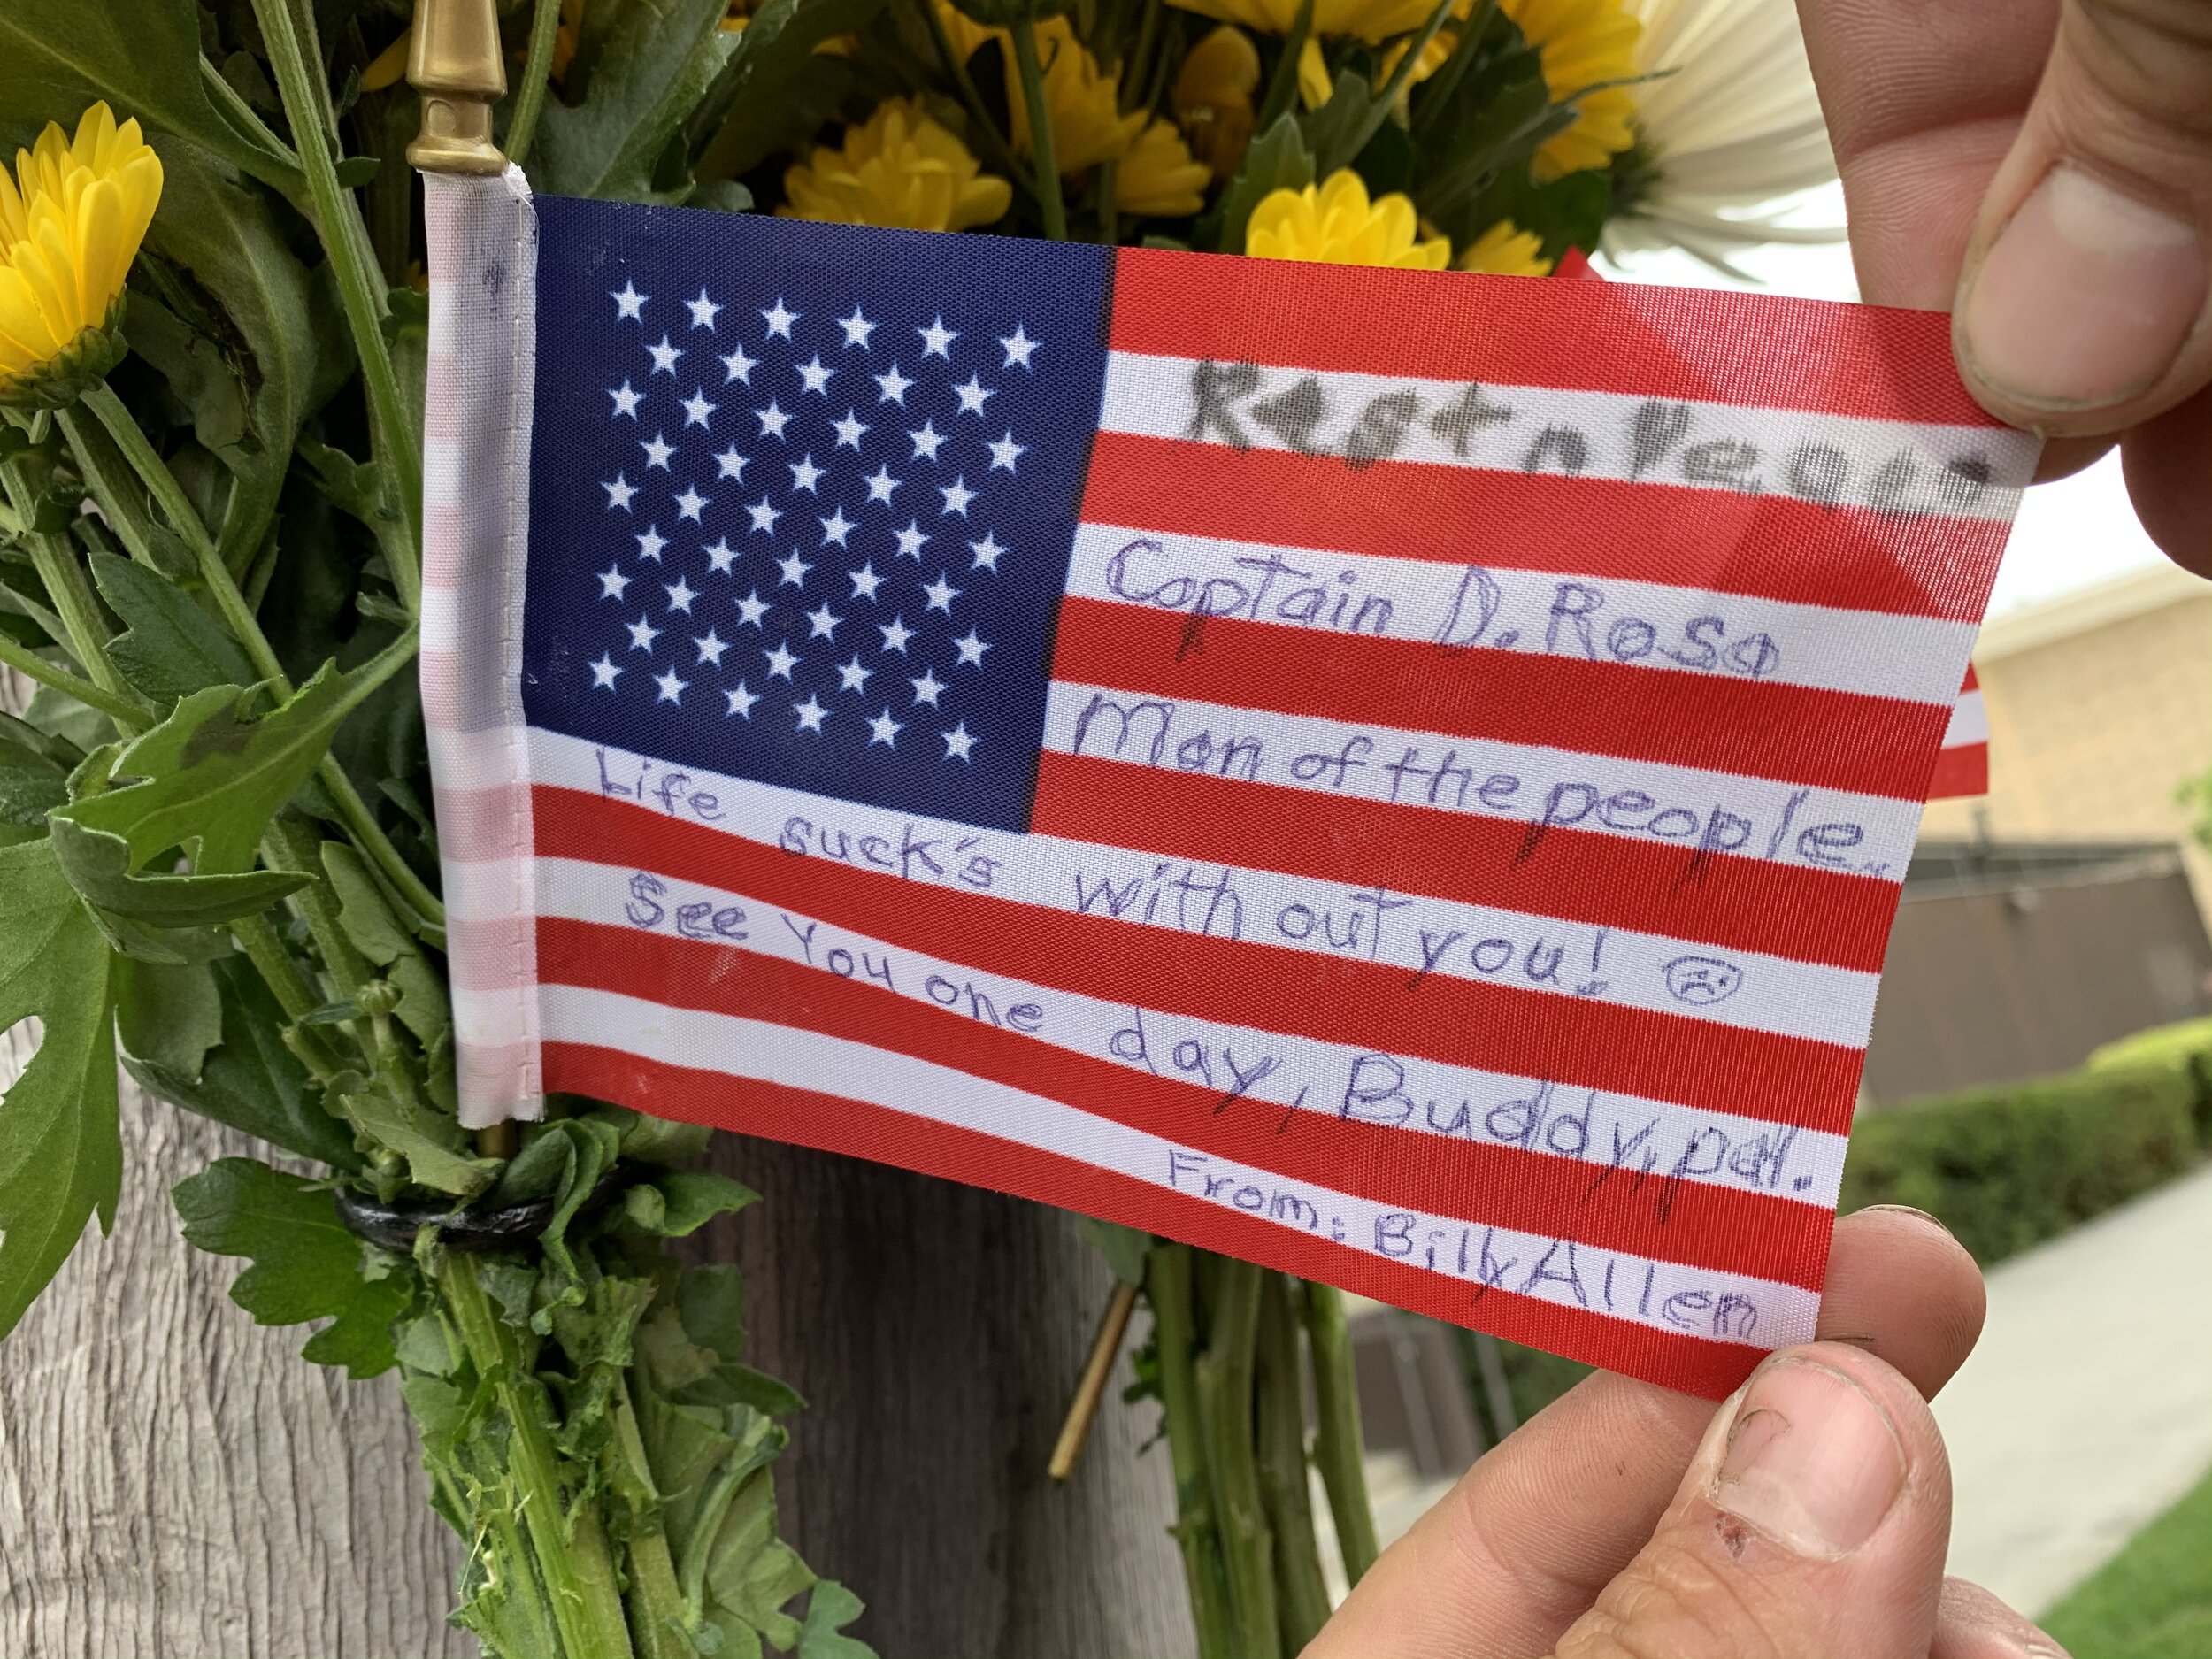 Rest n Peace
Captain D. Rosa
Man of the people..
Life suck's with out you!
See You one day, Buddy, pal.
From: Billy Allen